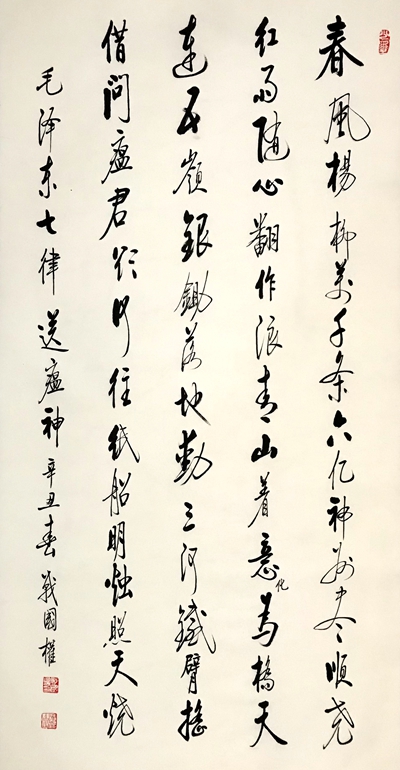 春風楊柳萬千条六亿神州尽順尧
红雨随心翻作浪青山着意化為橋天
連五嶺銀鋤落地動三河鐵臂搖
借問瘟君欲何往紙船明烛照天烧
毛泽东七律送瘟神辛丑春戰國權